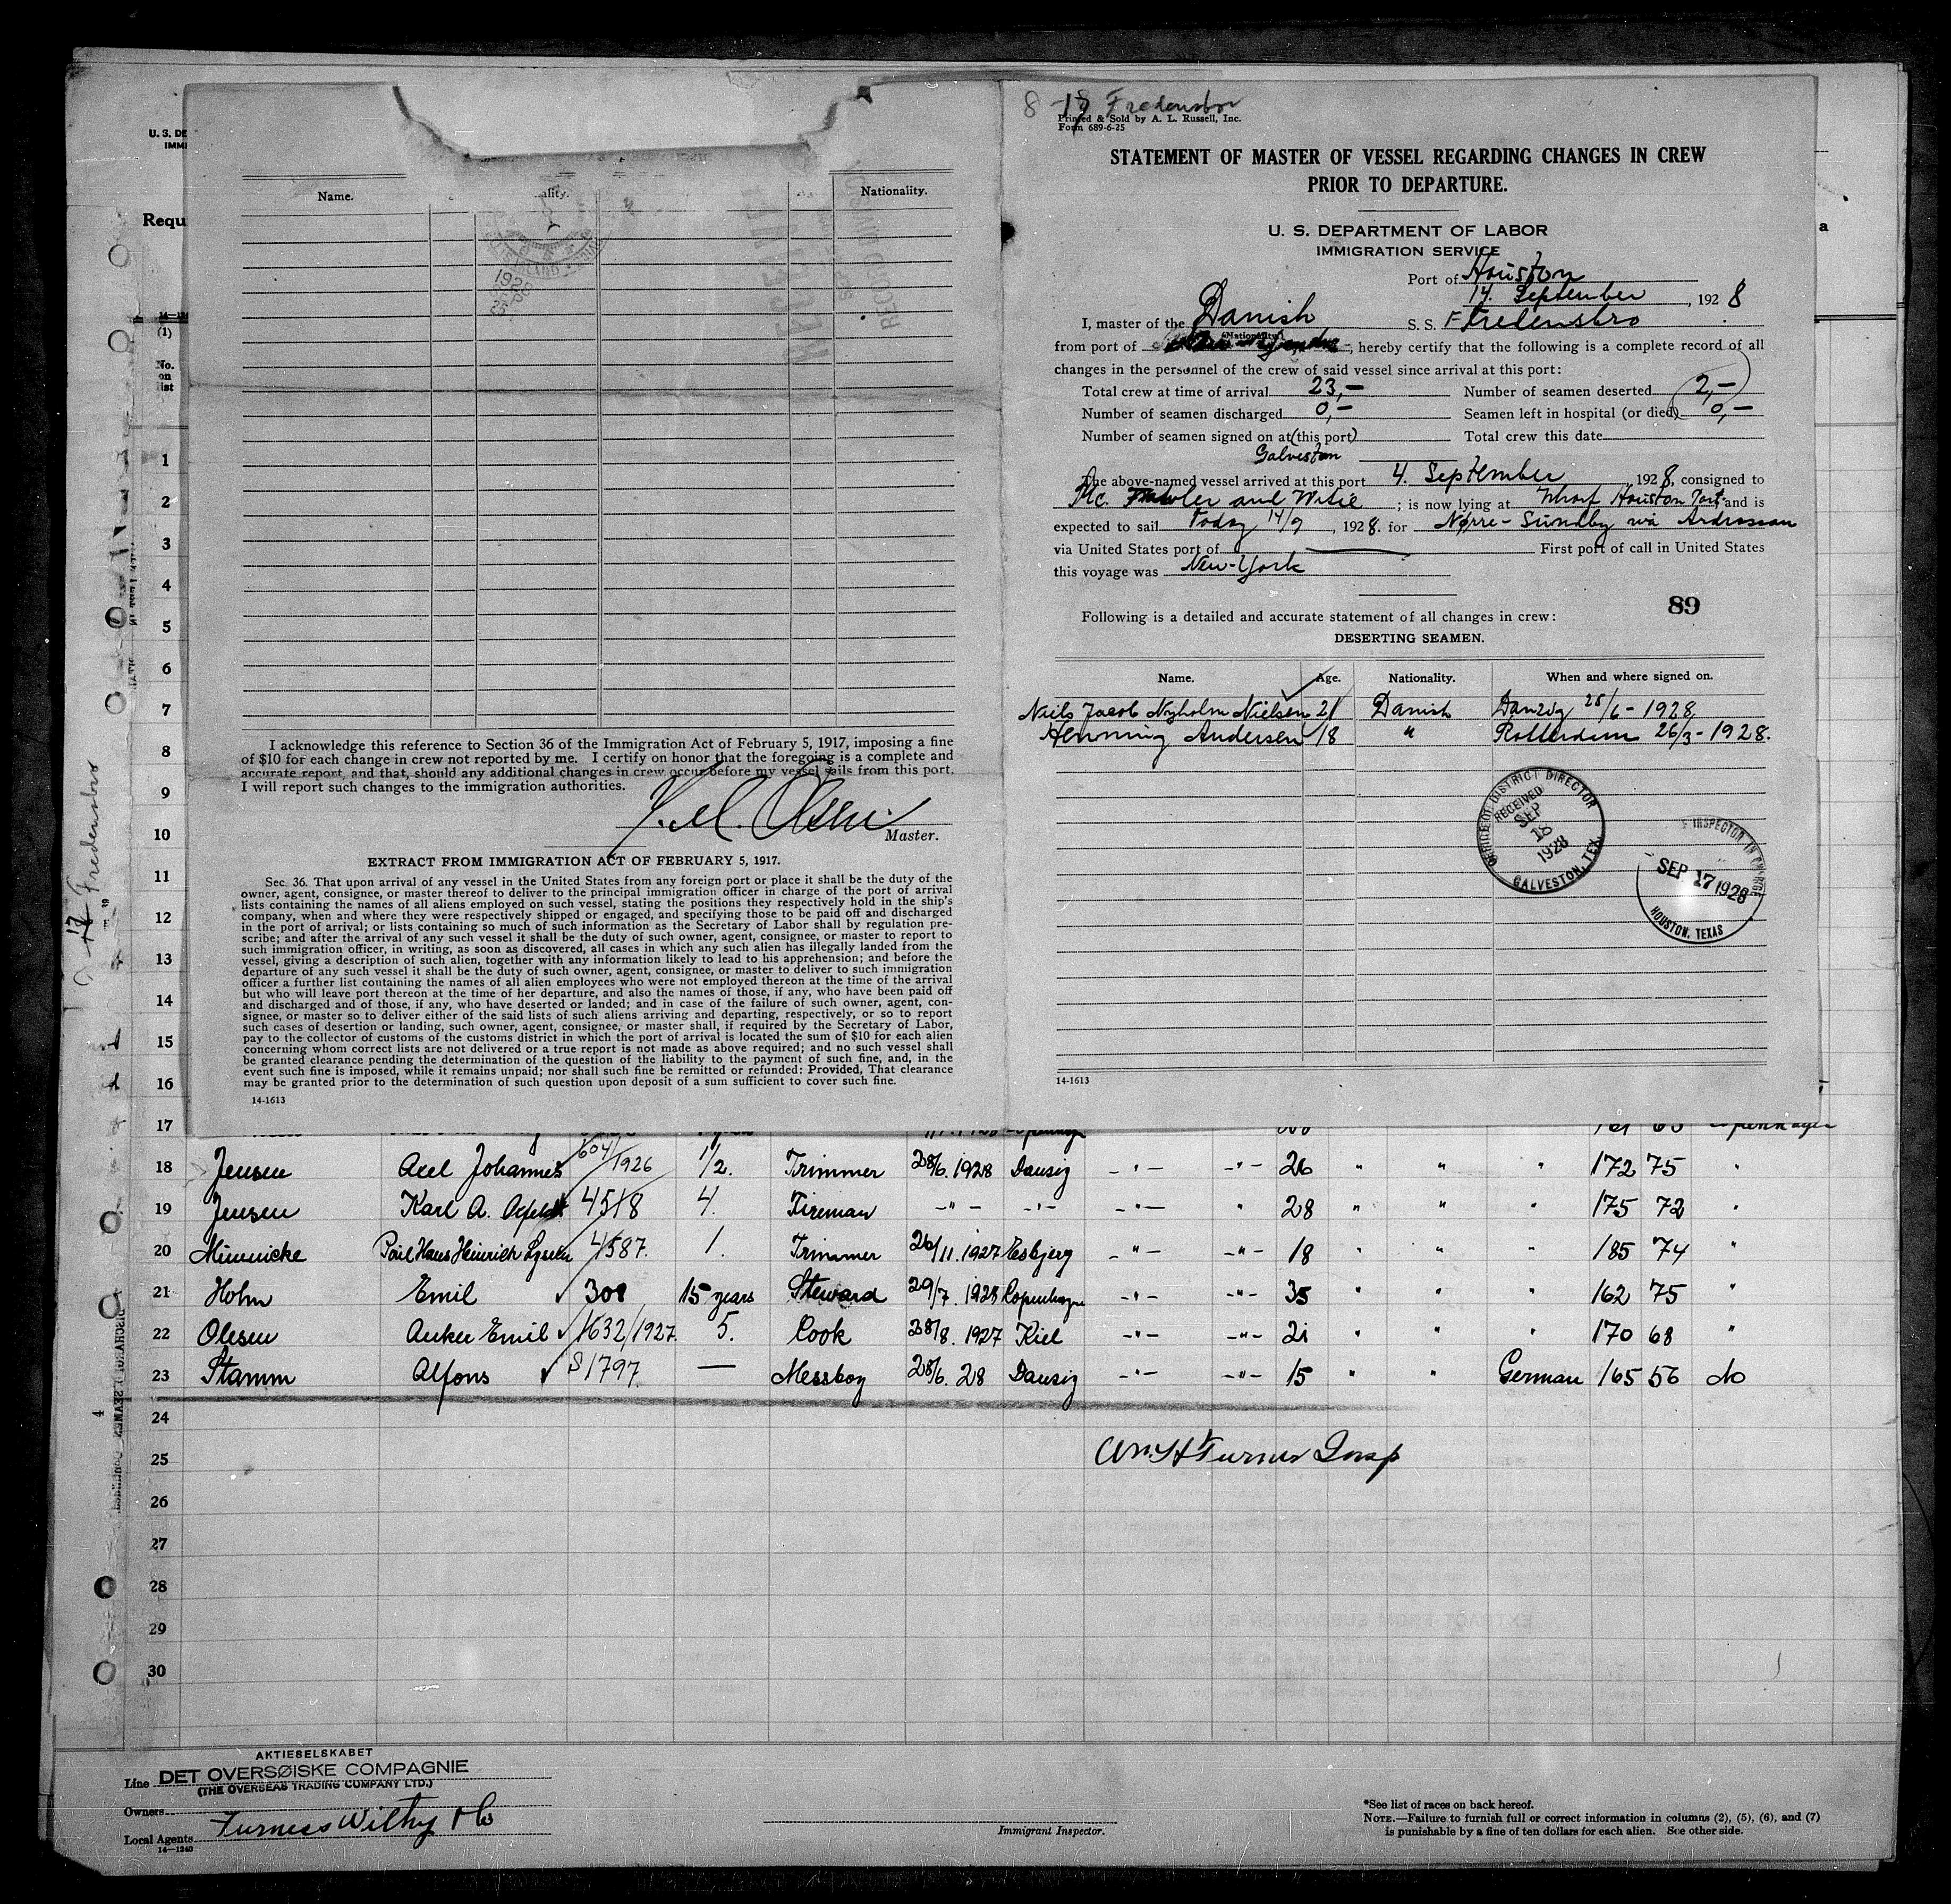 8 - 18 Fredensbro
Printed & Sold by A. L. Russell, Inc.
Form 689-6-25
STATEMENT OF MASTER OF VESSEL REGARDING CHANGES IN CREW
PRIOR TO DEPARTURE.
U. S. DEPARTMENT OF LABOR
IMMIGRATION SERVICE
Port of Houston
14. September, 1928
I, master of the Danish S. S. Fredensbro
(Nationality)
from port of , hereby certify that the following is a complete record of all
changes in the personnel of the crew of said vessel since arrival at this port:
Total crew at time of arrival 23,— Number of seamen deserted 2,—
Number of seamen discharged 0,— Seamen left in hospital (or died) 0,—
Number of seamen signed on at (this port) Total crew this date
Galveston
The above-named vessel arrived at this port 4. September, 1928, consigned to
Mc. and ; is now lying at Wharf Houston Port and is
expected to sail Today 14/9, 1928. for Nørre-Sundby via Ardrossan
via United States port of — First port of call in United States
this voyage was New-York
89
Following is a detailed and accurate statement of all changes in crew:
DESERTING SEAMEN.
Name. Age. Nationality. When and where signed on.
Niels Jacob Nyholm Nielsen 21 Danish Danzig 28/6 - 1928
Henning Andersen 18 " Rotterdam 26/3 - 1928.
OFFICE OF DISTRICT DIRECTOR
RECEIVED
SEP 18 1928
GALVESTON, TEX.
INSPECTOR IN CHARGE
SEP 17 1928
HOUSTON, TEXAS
14-1613
Name. ality. Nationality.
1928
I acknowledge this reference to Section 36 of the Immigration Act of February 5, 1917, imposing a fine
of $10 for each change in crew not reported by me. I certify on honor that the foregoing is a complete and
accurate report, and that, should any additional changes in crew occur before my vessel sails from this port,
I will report such changes to the immigration authorities.
Olsen
Master.
EXTRACT FROM IMMIGRATION ACT OF FEBRUARY 5, 1917.
Sec. 36. That upon arrival of any vessel in the United States from any foreign port or place it shall be the duty of the
owner, agent, consignee, or master thereof to deliver to the principal immigration officer in charge of the port of arrival
lists containing the names of all aliens employed on such vessel, stating the positions they respectively hold in the ship's
company, when and where they were respectively shipped or engaged, and specifying those to be paid off and discharged
in the port of arrival; or lists containing so much of such information as the Secretary of Labor shall by regulation pre-
scribe; and after the arrival of any such vessel it shall be the duty of such owner, agent, consignee, or master to report to
such immigration officer, in writing, as soon as discovered, all cases in which any such alien has illegally landed from the
vessel, giving a description of such alien, together with any information likely to lead to his apprehension; and before the
departure of any such vessel it shall be the duty of such owner, agent, consignee, or master to deliver to such immigration
officer a further list containing the names of all alien employees who were not employed thereon at the time of the arrival
but who will leave port thereon at the time of her departure, and also the names of those, if any, who have been paid off
and discharged and of those, if any, who have deserted or landed; and in case of the failure of such owner, agent, con-
signee, or master so to deliver either of the said lists of such aliens arriving and departing, respectively, or so to report
such cases of desertion or landing, such owner, agent, consignee, or master shall, if required by the Secretary of Labor,
pay to the collector of customs of the customs district in which the port of arrival is located the sum of $10 for each alien
concerning whom correct lists are not delivered or a true report is not made as above required; and no such vessel shall
be granted clearance pending the determination of the question of the liability to the payment of such fine, and, in the
event such fine is imposed, while it remains unpaid; nor shall such fine be remitted or refunded: Provided, That clearance
may be granted prior to the determination of such question upon deposit of a sum sufficient to cover such fine.
14-1613
U. S. DE
IMMI
Requ
a
(1)
No.
on
list
1
2
3
4
5
6
7
8
9
10
11
12
13
14
15
16
17
18 Jensen Axel Johannes 604/1926 1/2. Trimmer 28/6. 1928 Danzig -"- -"- 26 " " " 172 75 "
19 Jensen Karl A. 4518 4. Fireman -"- -"- -"- " 28 " " " 175 72 "
20 Minnicke Poul Hans Heinrich 4587. 1. Trimmer 26/11. 1927 Esbjerg -"- -"- 18 " " " 185 74 "
21 Holm Emil 301 15 years Steward 29/7. 1928 Copenhagen -"- -"- 35 " " " 162 75 "
22 Olesen Anker Emil 1632/1927. 5. Cook 28/8. 1927 Kiel -"- -"- 21 " " " 170 68 "
23 Stamm Alfons S1797 — Messboy 28/6. 28 Danzig -"- -"- 15 " " German 165 56 No
24
25 Wm H Turner Insp
26
27
28
29
30
Fredensbro
AKTIESELSKABET
Line DET OVERSØISKE COMPAGNIE
(THE OVERSEAS TRADING COMPANY LTD.)
Owners
Local Agents Furness Withy & Co
14—1240
Immigrant Inspector.
*See list of races on back hereof.
NOTE.—Failure to furnish full or correct information in columns (2), (5), (6), and (7)
is punishable by a fine of ten dollars for each alien. See other side.